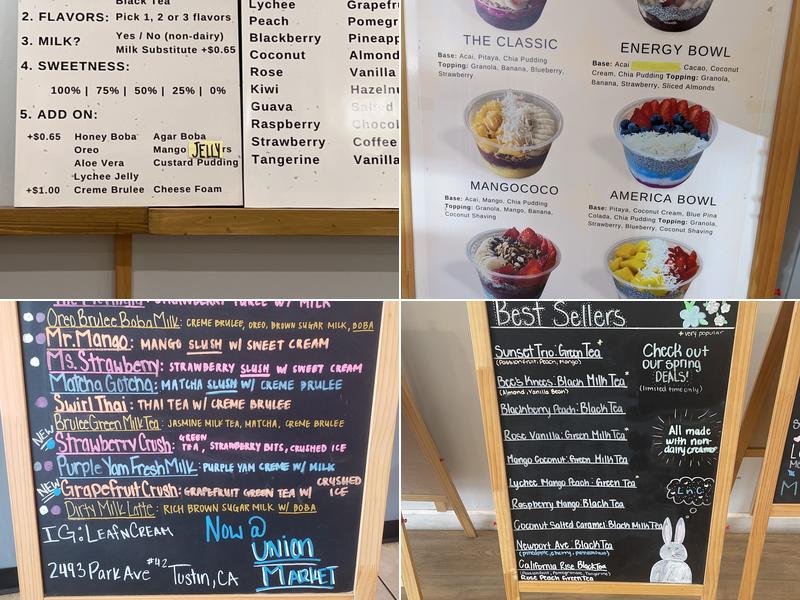 Black Tea
2. FLAVORS: Pick 1, 2 or 3 flavors
3. MILK? Yes / No (non-dairy)
Milk Substitute +$0.65
4. SWEETNESS:
100% | 75% | 50% | 25% | 0%
5. ADD ON:
+$0.65 Honey Boba Agar Boba
Oreo Mango JELLY rs
Aloe Vera Custard Pudding
Lychee Jelly
+$1.00 Creme Brulee Cheese Foam
Lychee Grapefru
Peach Pomegr
Blackberry Pineapp
Coconut Almond
Rose Vanilla
Kiwi Hazelnu
Guava Salted
Raspberry Chocol
Strawberry Coffee
Tangerine Vanilla
THE CLASSIC
Base: Acai, Pitaya, Chia Pudding
Topping: Granola, Banana, Blueberry,
Strawberry
ENERGY BOWL
Base: Acai Cacao, Coconut
Cream, Chia Pudding Topping: Granola,
Banana, Strawberry, Sliced Almonds
MANGOCOCO
Base: Acai, Mango, Chia Pudding
Topping: Granola, Mango, Banana,
Coconut Shaving
AMERICA BOWL
Base: Pitaya, Coconut Cream, Blue Pina
Colada, Chia Pudding Topping: Granola,
Strawberry, Blueberry, Coconut Shaving
STRAWBERRY PUREE W/ MILK
Oreo Brulee Boba Milk: CREME BRULEE, OREO, BROWN SUGAR MILK, BOBA
Mr. Mango: MANGO SLUSH W/ SWEET CREAM
Ms. Strawberry: STRAWBERRY SLUSH W/ SWEET CREAM
Matcha Gotcha: MATCHA SLUSH W/ CREME BRULEE
Swirl Thai: THAI TEA W/ CREME BRULEE
Brulee Green Milk Tea: JASMINE MILK TEA, MATCHA, CREME BRULEE
NEW Strawberry Crush: GREEN TEA, STRAWBERRY BITS, CRUSHED ICE
Purple Yam Fresh Milk: PURPLE YAM CREME W/ MILK
NEW Grapefruit Crush: GRAPEFRUIT GREEN TEA W/ CRUSHED ICE
Dirty Milk Latte: RICH BROWN SUGAR MILK W/ BOBA
IG: LEAFNCREAM
Now @
UNION
MARKET
2493 Park Ave #42 Tustin, CA
Best Sellers
* very popular
Sunset Trio: Green Tea*
(Passionfruit, Peach, Mango)
Bee's Knees: Black Milk Tea*
(Almond, Vanilla Bean)
Blackberry Peach: Black Tea
Rose Vanilla: Green Milk Tea*
Mango Coconut: Green Milk Tea
Lychee Mango Peach: Green Tea*
Raspberry Mango: Black Tea
Coconut Salted Caramel: Black Milk Tea
Newport Ave: Black Tea
(pineapple, cherry, passionfruit)
California Rise: Black Tea
(Passionfruit, Pomegranate, Tangerine)
Rose Peach Green Tea
Check out
our spring
DEALS!
(limited time only)
All made
with non-
dairy creamer
LNC